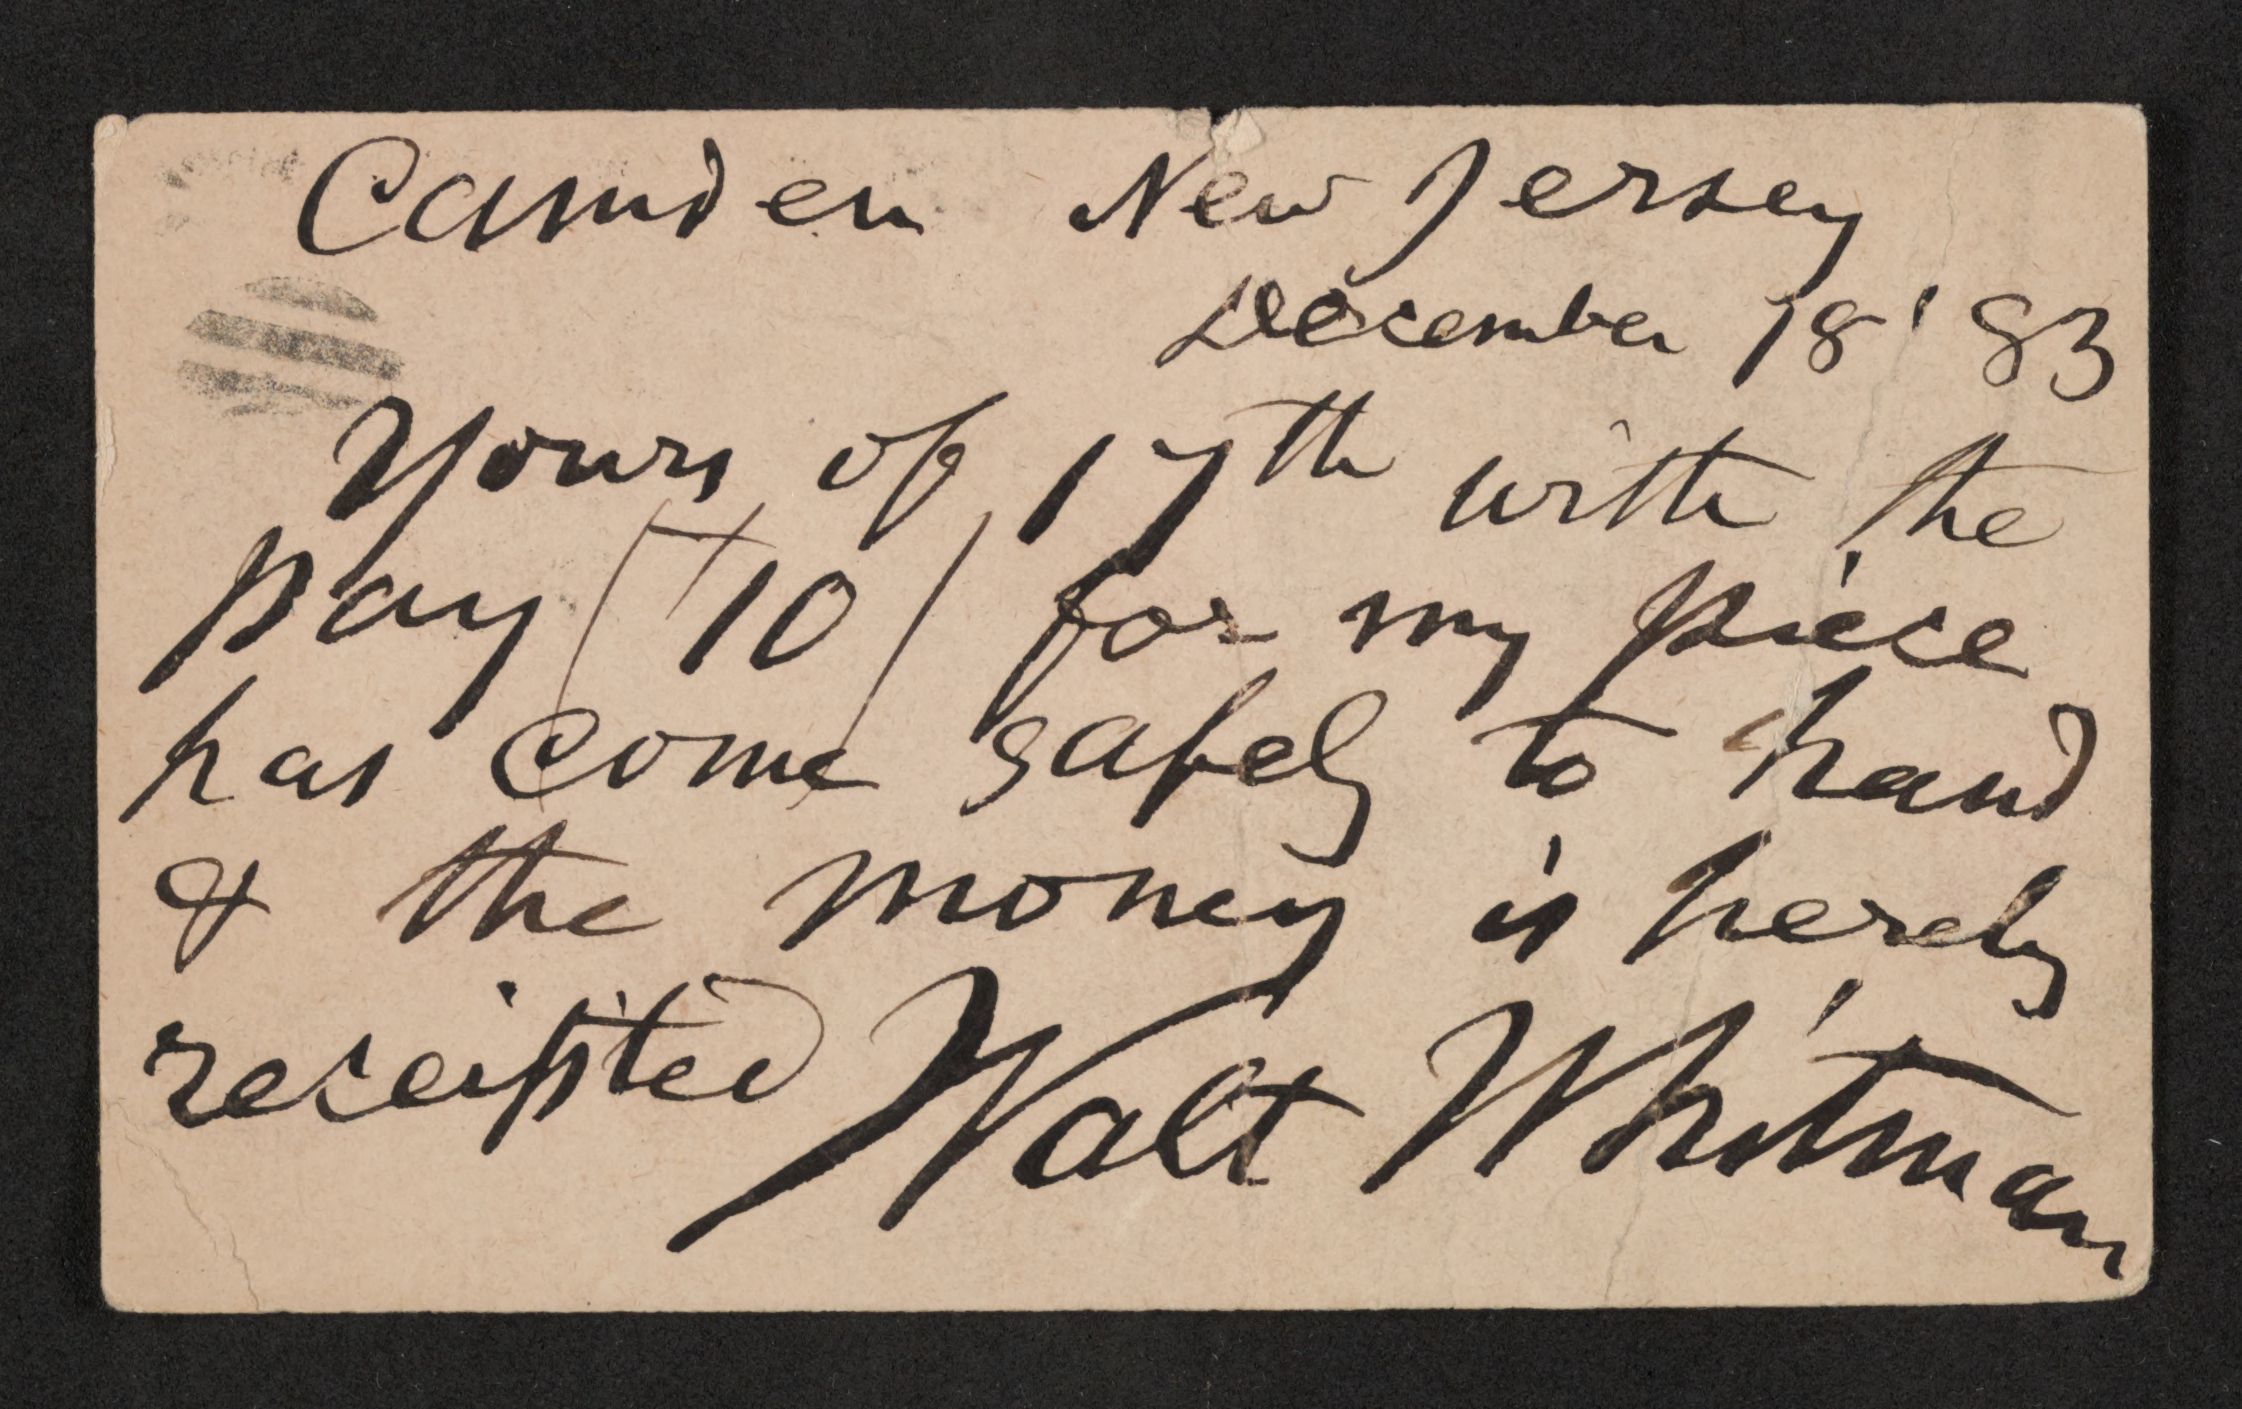 Camden New Jersey
December 18 '83
Yours of 17th with the
pay ($10) for my piece
has come safely to hand
& the money is hereby
receipted Walt Whitman